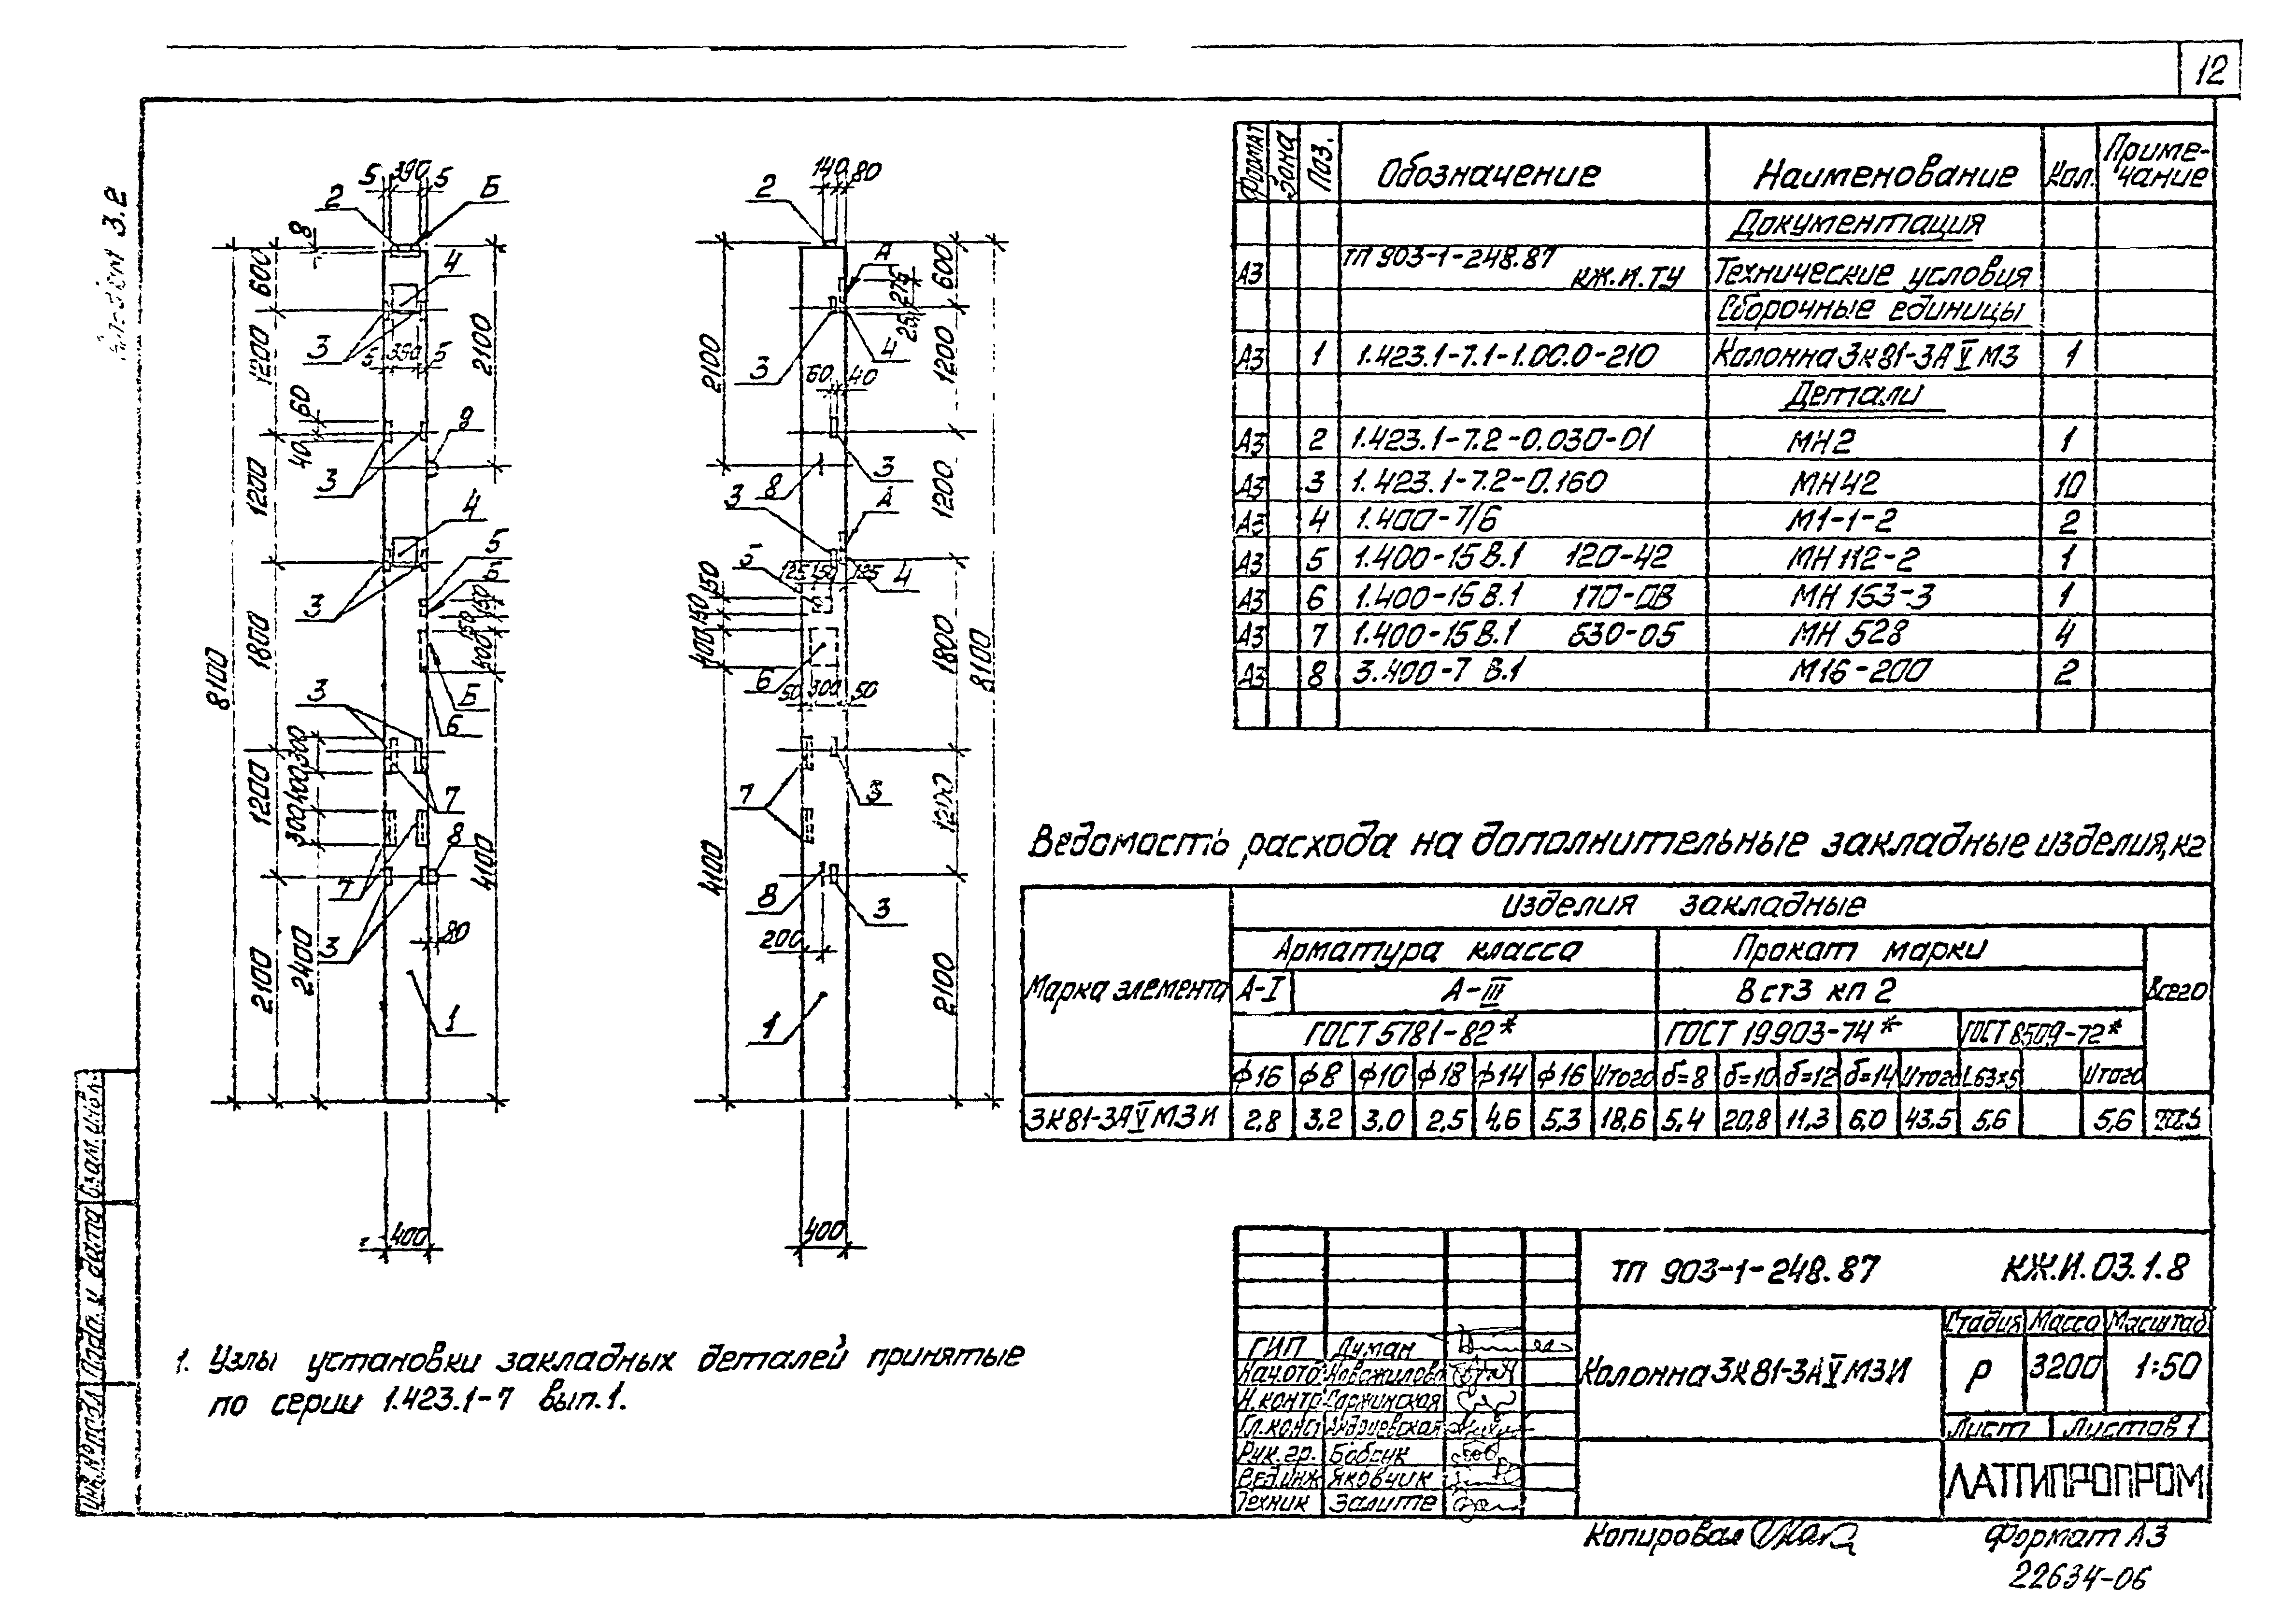 12
Альбом 3.2
5 390 5
2 Б
8
4
600
1200
3
5 390 5
2100
60
40
8
3
1200
4
5
Б
3
150 150
400
1800
8100
Б
6
3
300 400 300
7
1200
8
4100
7
3
80
2400
2100
1
400
140 80
2
А
600
275
25
3
4
2100
60 40
1200
8
3
3
А
1200
5
125 150 125
4
150 150
400
6
50 300 50
1800
8100
7
3
1200
4100
8
3
200
2100
1
400
Формат Зона Поз. Обозначение Наименование Кол. Примечание
Документация
А3 ТП 903-1-248.87 КЖ.И.ТУ Технические условия
Сборочные единицы
А3 1 1.423.1-7.1-1.00.0-210 Колонна 3К81-3АⅤМ3 1
Детали
А3 2 1.423.1-7.2-0.030-01 МН2 1
А3 3 1.423.1-7.2-0.160 МН42 10
А3 4 1.400-7/6 М1-1-2 2
А3 5 1.400-15 В.1 120-42 МН 112-2 1
А3 6 1.400-15 В.1 170-08 МН 153-3 1
А3 7 1.400-15 В.1 530-05 МН 528 4
А3 8 3.400-7 В.1 М16-200 2
Ведомость расхода на дополнительные закладные изделия, кг
Марка элемента
Изделия закладные
Арматура класса Прокат марки
Всего
А-I А-III Вст3 кп 2
ГОСТ 5781-82* ГОСТ 19903-74* ГОСТ 8509-72*
ф16 ф8 ф10 ф18 ф14 ф16 Итого б=8 б=10 б=12 б=14 Итого L63х5 Итого
3К81-3АⅤМ3И 2,8 3,2 3,0 2,5 4,6 5,3 18,6 5,4 20,8 11,3 6,0 43,5 5,6 5,6
1. Узлы установки закладных деталей принятые
по серии 1.423.1-7 вып.1.
ТП 903-1-248.87 КЖ.И.03.1.8
Колонна 3К81-3АⅤМ3И
Стадия Масса Масштаб
Р 3200 1:50
Лист Листов 1
ЛАТГИПРОПРОМ
ГИП Думан
Нач.отд. Новожилова
Н.контр. Саржинская
Гл.конст. Андриевская
Рук.гр. Бобчук
Вед.инж Яковчик
Техник Залите
Инв.№ подл. Подп. и дата Взам.инв.
Копировал
Формат А3
22634-06